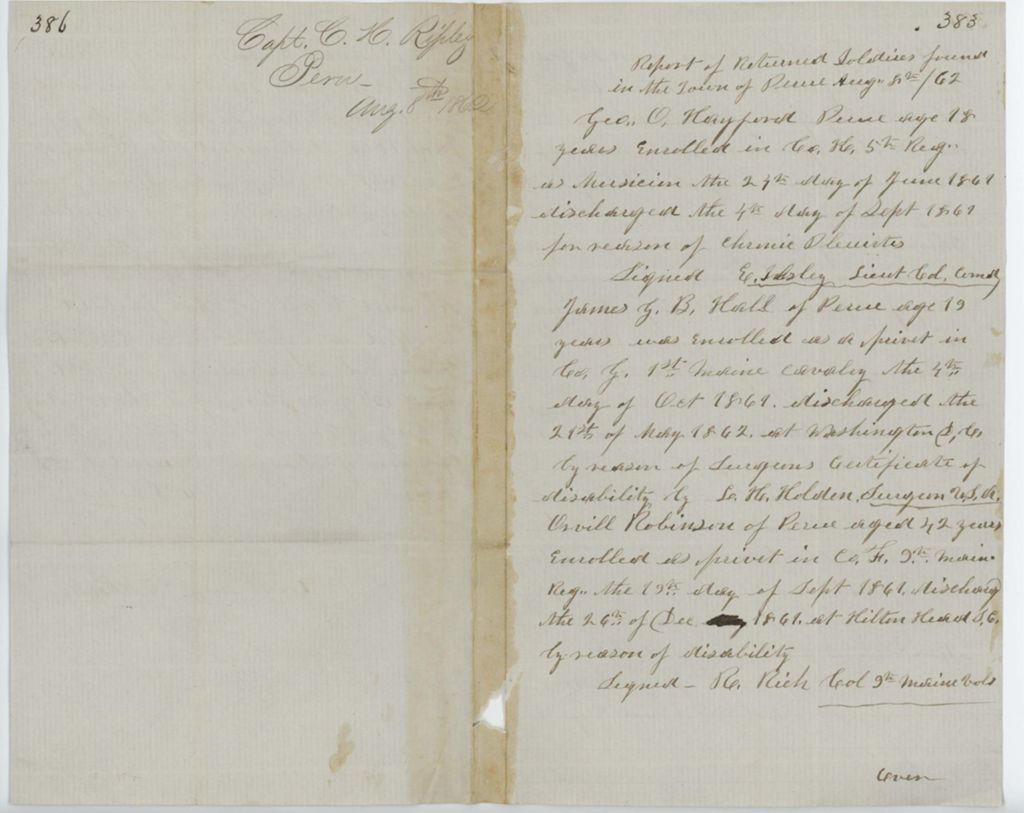 386
Capt. C. H. Ripley
Peru -
Aug. 8th 1862
383
Report of Returned Soldiers found
in the Town of Peru Aug. 8th /62
Geo. O. Hayford Peru age 18
years Enrolled in Co. H, 5th Reg.
as Musician the 24th day of June 1861
discharged the 4th day of Sept 1861
for reason of Chronic Pleuritis
Signed E. Ilsley Lieut Col. Comdg
James G. B. Hall of Peru age 19
years was Enrolled as a privet in
Co. G. 1st Maine Cavalry the 4th
day of Oct 1861. discharged the
21st of May 1862. at Washington D. C.
by reason of Surgeons Certificate of
disability by L. H. Holden, Surgeon U.S.A.
Orvill Robinson of Peru aged 42 years
Enrolled as privet in Co. F. 9th Main
Reg. the 19th day of Sept 1861. discharg
the 26th of Dec 1861. at Hilton Head S.C.
by reason of disability
Signed - R. Rich Col 9th Maine Vols
Over